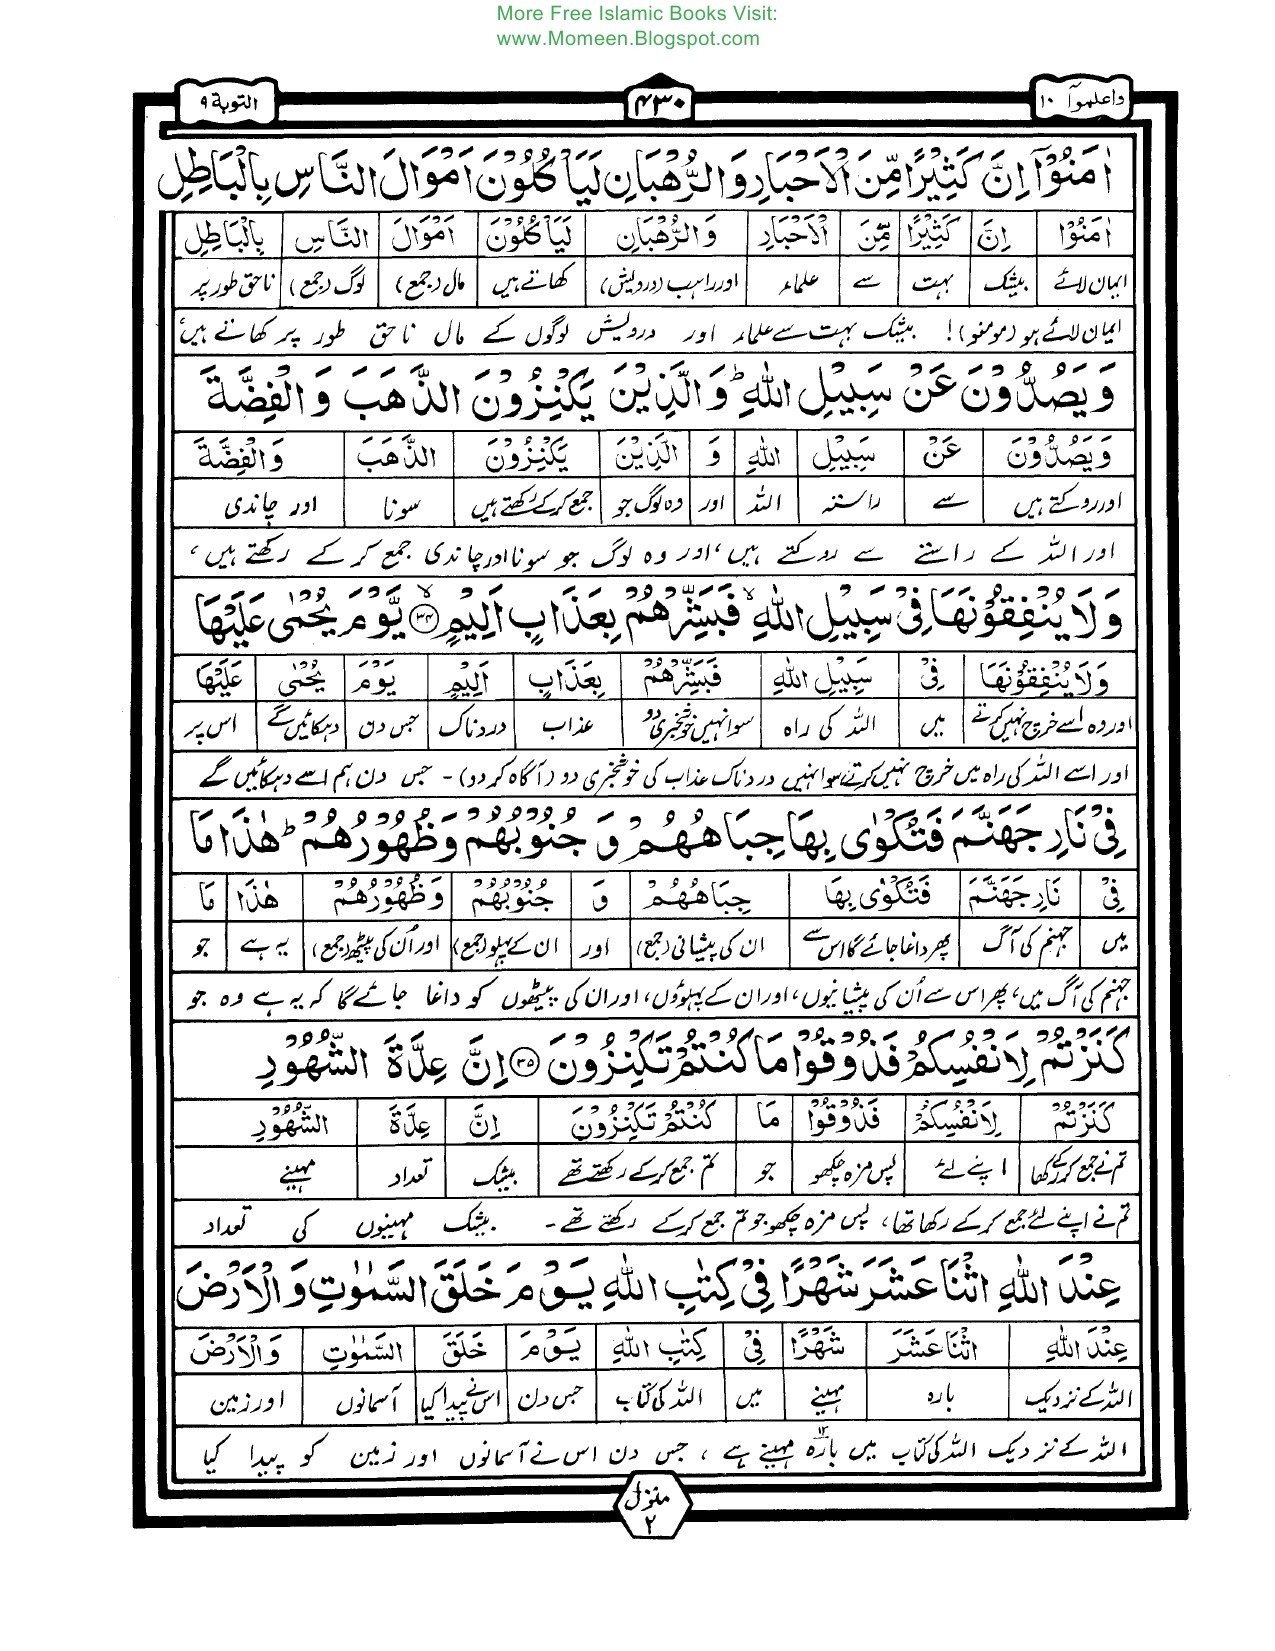 More Free Islamic Books Visit:
www.Momeen.Blogspot.com
واعلموآ ۱۰ ۴۳۰ التوبة ۹
اٰمَنُوْۤا اِنَّ كَثِيْرًا مِّنَ الْاَحْبَارِ وَالرُّهْبَانِ لَيَاْكُلُوْنَ اَمْوَالَ النَّاسِ بِالْبَاطِلِ
اٰمَنُوْا اِنَّ كَثِيْرًا مِّنَ الْاَحْبَارِ وَالرُّهْبَانِ لَيَاْكُلُوْنَ اَمْوَالَ النَّاسِ بِالْبَاطِلِ
ایمان لائے بیشک بہت سے علماء اور راہب (درویش) کھاتے ہیں مال (جمع) لوگ (جمع) ناحق طور پر
ایمان لائے ہو (مومنو)! بیشک بہت سے علماء اور درویش لوگوں کے مال ناحق طور پر کھاتے ہیں،
وَيَصُدُّوْنَ عَنْ سَبِيْلِ اللّٰهِ ؕ وَالَّذِيْنَ يَكْنِزُوْنَ الذَّهَبَ وَالْفِضَّةَ
وَيَصُدُّوْنَ عَنْ سَبِيْلِ اللّٰهِ وَ الَّذِيْنَ يَكْنِزُوْنَ الذَّهَبَ وَالْفِضَّةَ
اور روکتے ہیں سے راستہ اللہ اور وہ لوگ جو جمع کر کے رکھتے ہیں سونا اور چاندی
اور اللہ کے راستے سے روکتے ہیں، اور وہ لوگ جو سونا اور چاندی جمع کر کے رکھتے ہیں،
وَلَا يُنْفِقُوْنَهَا فِيْ سَبِيْلِ اللّٰهِ ۙ فَبَشِّرْهُمْ بِعَذَابٍ اَلِيْمٍ ۙ ﴿۳۴﴾ يَّوْمَ يُحْمٰى عَلَيْهَا
وَلَا يُنْفِقُوْنَهَا فِيْ سَبِيْلِ اللّٰهِ فَبَشِّرْهُمْ بِعَذَابٍ اَلِيْمٍ يَوْمَ يُحْمٰى عَلَيْهَا
اور وہ اسے خرچ نہیں کرتے میں اللہ کی راہ سو انہیں خوشخبری دو عذاب دردناک جس دن دہکائیں گے اس پر
اور اسے اللہ کی راہ میں خرچ نہیں کرتے، سو انہیں دردناک عذاب کی خوشخبری دو (آگاہ کر دو)۔ جس دن ہم اسے دہکائیں گے
فِيْ نَارِ جَهَنَّمَ فَتُكْوٰى بِهَا جِبَاهُهُمْ وَ جُنُوْبُهُمْ وَظُهُوْرُهُمْ ؕ هٰذَا مَا
فِيْ نَارِ جَهَنَّمَ فَتُكْوٰى بِهَا جِبَاهُهُمْ وَ جُنُوْبُهُمْ وَظُهُوْرُهُمْ هٰذَا مَا
میں جہنم کی آگ پھر داغا جائے گا اس سے ان کی پیشانی (جمع) اور ان کے پہلو (جمع) اور اُن کی پیٹھ (جمع) یہ ہے جو
جہنم کی آگ میں، پھر اس سے اُن کی پیشانیوں، اور ان کے پہلوؤں، اور ان کی پیٹھوں کو داغا جائے گا کہ یہ ہے وہ جو
كَنَزْتُمْ لِاَنْفُسِكُمْ فَذُوْقُوْا مَا كُنْتُمْ تَكْنِزُوْنَ ﴿۳۵﴾ اِنَّ عِدَّةَ الشُّهُوْرِ
كَنَزْتُمْ لِاَنْفُسِكُمْ فَذُوْقُوْا مَا كُنْتُمْ تَكْنِزُوْنَ اِنَّ عِدَّةَ الشُّهُوْرِ
تم نے جمع کر کے رکھا اپنے لئے پس مزہ چکھو جو تم جمع کر کے رکھتے تھے بیشک تعداد مہینے
تم نے اپنے لئے جمع کر کے رکھا تھا، پس مزہ چکھو جو تم جمع کر کے رکھتے تھے۔ بیشک مہینوں کی تعداد
عِنْدَ اللّٰهِ اثْنَا عَشَرَ شَهْرًا فِيْ كِتٰبِ اللّٰهِ يَوْمَ خَلَقَ السَّمٰوٰتِ وَالْاَرْضَ
عِنْدَ اللّٰهِ اثْنَا عَشَرَ شَهْرًا فِيْ كِتٰبِ اللّٰهِ يَوْمَ خَلَقَ السَّمٰوٰتِ وَالْاَرْضَ
اللہ کے نزدیک بارہ مہینے میں اللہ کی کتاب جس دن اس نے پیدا کیا آسمانوں اور زمین
اللہ کے نزدیک اللہ کی کتاب میں بارہ ۱۲ مہینے ہے، جس دن اس نے آسمانوں اور زمین کو پیدا کیا
منزل
۲